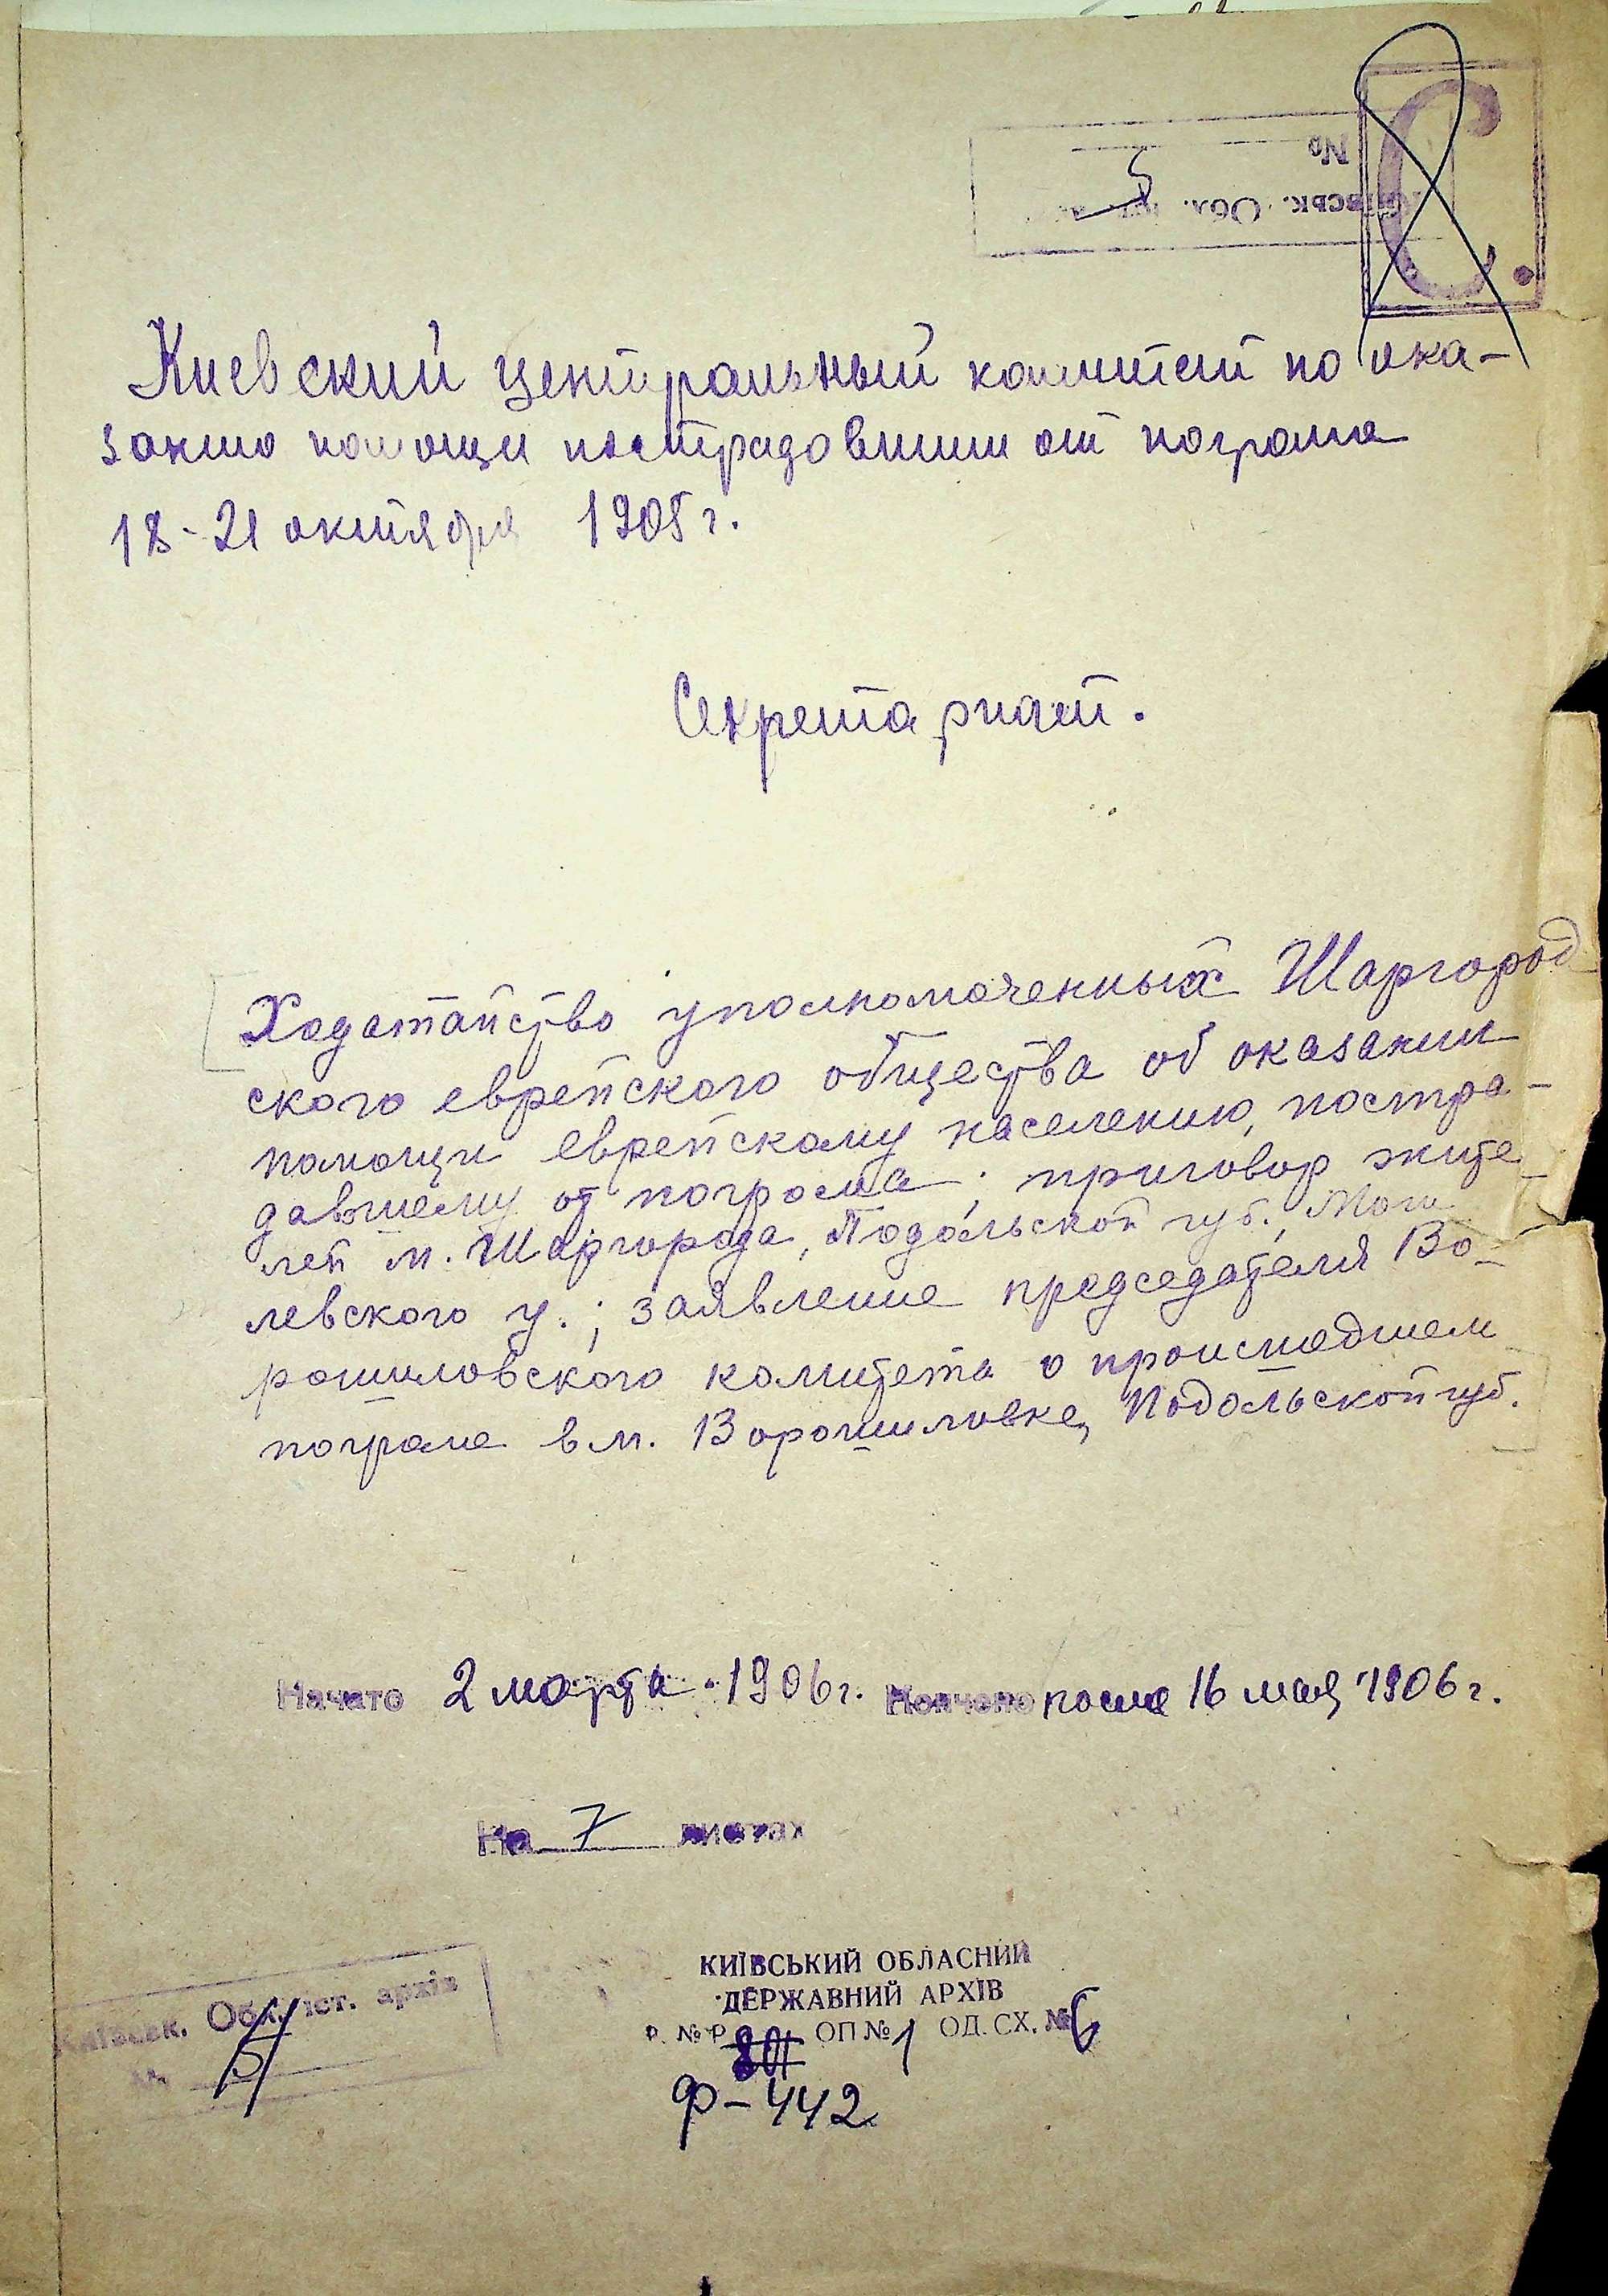 С.
№
Київськ. Обл.
5
Киевский центральный комитет по ока-
занию помощи пострадавшим от погрома
18-21 октября 1905 г.
Секретариат.
Ходатайство уполномоченных Шаргород
ского еврейского общества об оказании
помощи еврейскому населению, постра-
давшему от погрома; приговор жите-
лей м. Шаргорода, Подольской губ., Моги
левского у.; заявление председателя Во-
рошиловского комитета о происшедшем
погроме в м. Ворошиловке, Подольской губ.
Начато 2 марта 1906 г. Кончено после 16 мая 1906 г.
На 7 листах
КИЇВСЬКИЙ ОБЛАСНИЙ
ДЕРЖАВНИЙ АРХІВ
Ф. № Р ОП № 1 ОД. СХ. № 6
Ф-442
Київськ. Обл. іст. архів
№ 5